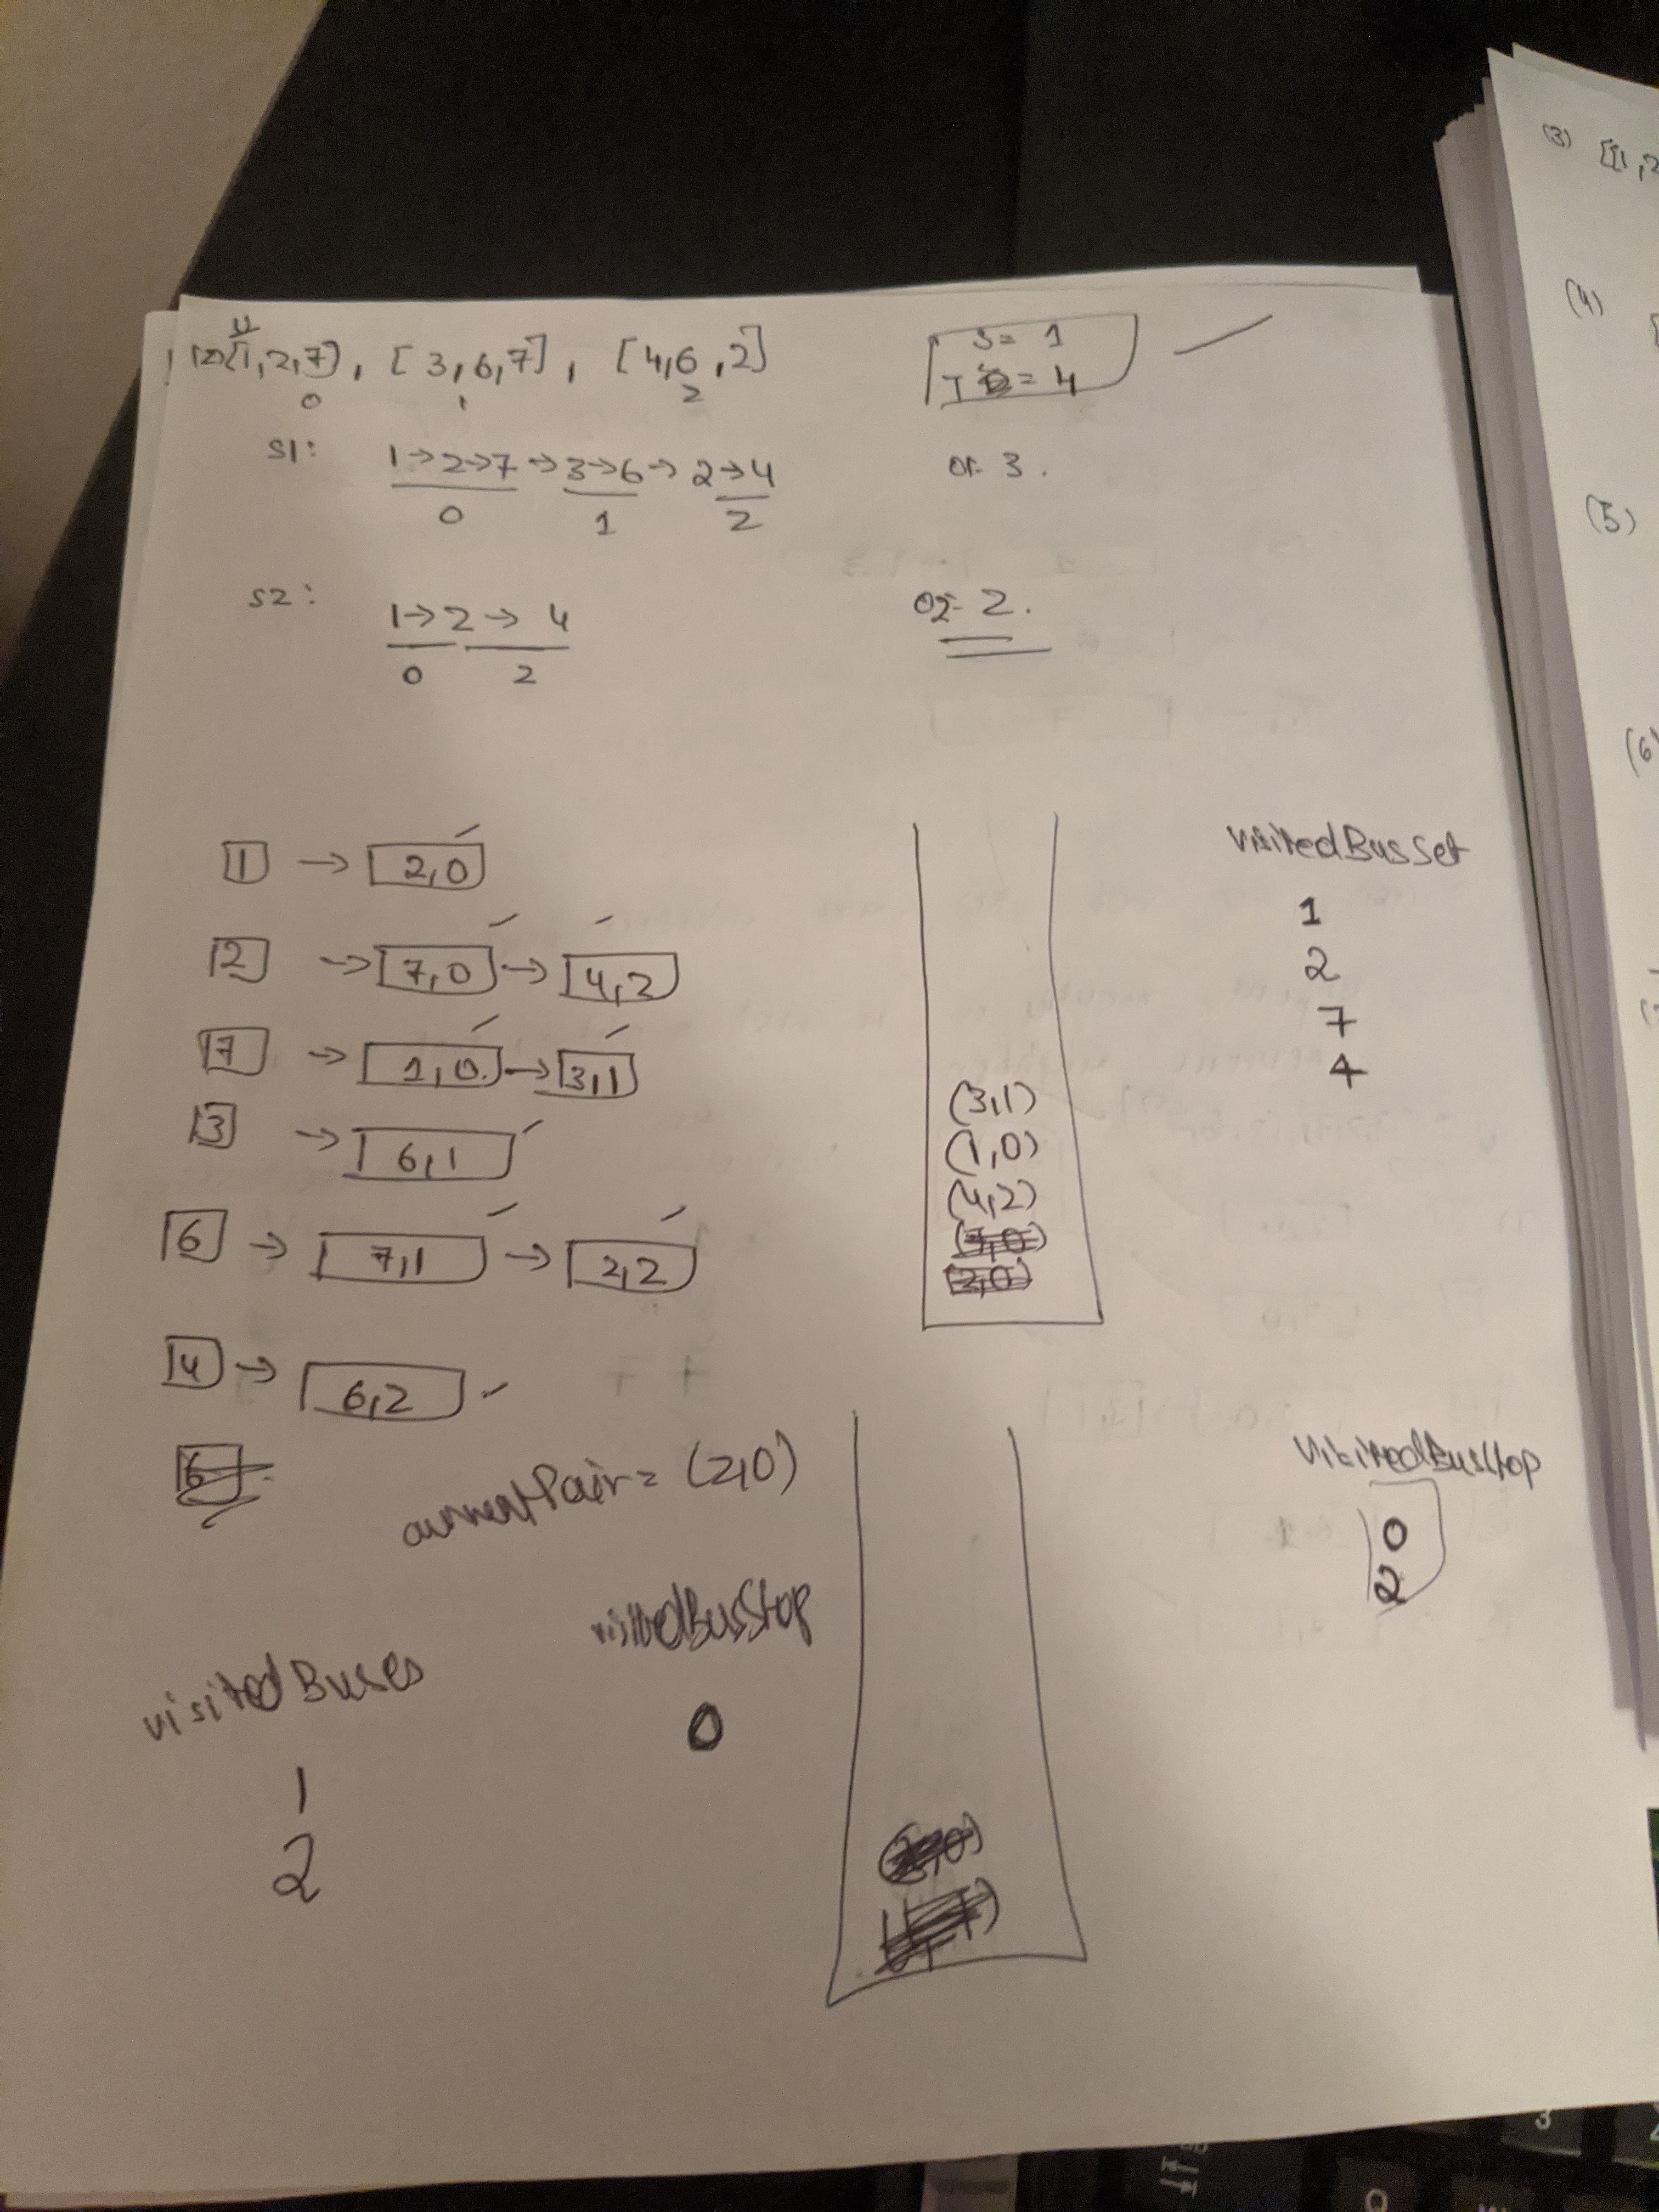 [1,2,7], [3,6,7], [4,6,2]
0 1 2
S = 1
T = 4
S1: 1→2→7→3→6→2→4
0 1 2
3.
S2: 1→2→4
0 2
2.
1 → 2,0
2 → 7,0 → 4,2
7 → 1,0 → 3,1
3 → 6,1
6 → 7,1 → 2,2
4 → 6,2
6
(3,1)
(1,0)
(4,2)
(7,0)
(2,0)
visitedBusSet
1
2
7
4
currentPair = (2,0)
visitedBusStop
0
2
visitedBuses
1
2
visitedBusStop
0
(3) [[1,2
(4)
(5)
(6)
3